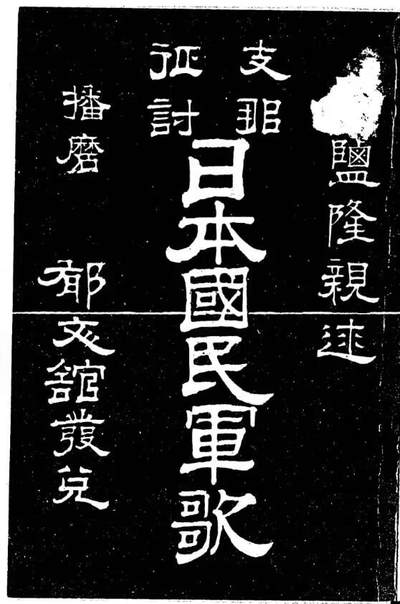 鹽隆親述
支那
征討
日本國民軍歌
播磨 郁文舘發兌